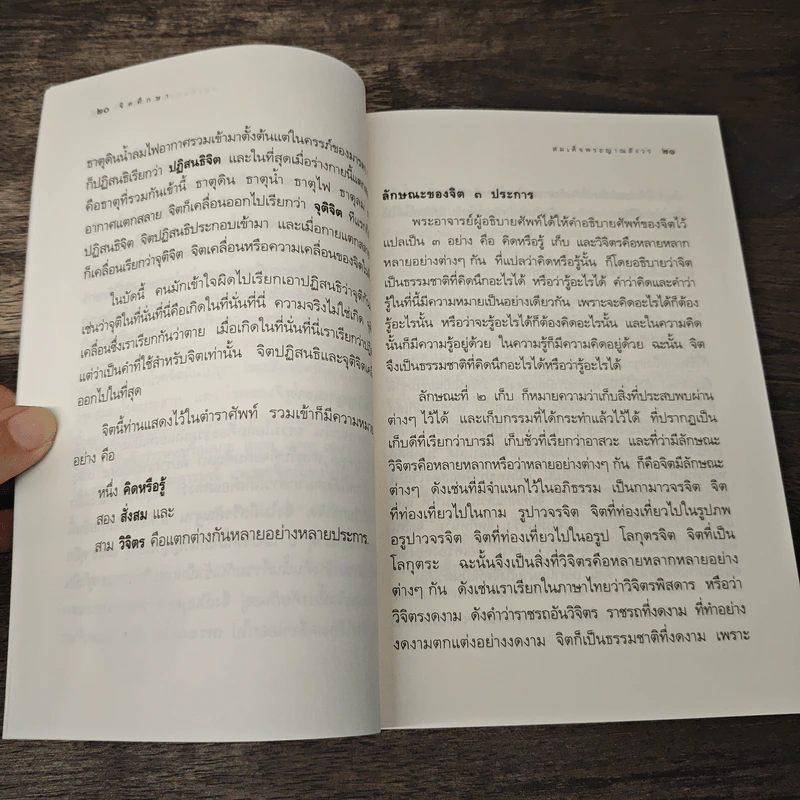 ๒๐ จิตศึกษา
ธาตุดินน้ำลมไฟอากาศรวมเข้ามาตั้งต้นแต่ในครรภ์ของมารดา
ก็ปฏิสนธิเรียกว่า ปฏิสนธิจิต และในที่สุดเมื่อร่างกายนี้แตก
คือธาตุที่รวมกันเข้านี้ ธาตุดิน ธาตุน้ำ ธาตุไฟ ธาตุลม
อากาศแตกสลาย จิตก็เคลื่อนออกไปเรียกว่า จุติจิต ทีแรก
ปฏิสนธิจิต จิตปฏิสนธิประกอบเข้ามา และเมื่อกายแตก
ก็เคลื่อนเรียกว่าจุติจิต จิตเคลื่อนหรือความเคลื่อนของจิต
ในบัดนี้ คนมักเข้าใจผิดไปเรียกเอาปฏิสนธิว่าจุติ
เช่นว่าจุติในที่นั่นที่นี่คือเกิดในที่นั่นที่นี่ ความจริงไม่ใช่เกิด
เคลื่อนซึ่งเราเรียกกันว่าตาย เมื่อเกิดในที่นั่นที่นี่เราเรียกว่า
แต่ว่าเป็นคำที่ใช้สำหรับจิตเท่านั้น จิตปฏิสนธิและจุติจิต
ออกไปในที่สุด
จิตนี้ท่านแสดงไว้ในตำราศัพท์ รวมเข้าก็มีความหมาย
อย่าง คือ
หนึ่ง คิดหรือรู้
สอง สั่งสม และ
สาม วิจิตร คือแตกต่างกันหลายอย่างหลายประการ
สมเด็จพระญาณสังวร ๒๑
ลักษณะของจิต ๓ ประการ
พระอาจารย์ผู้อธิบายศัพท์ได้ให้คำอธิบายศัพท์ของจิตไว้
แปลเป็น ๓ อย่าง คือ คิดหรือรู้ เก็บ และวิจิตรคือหลายหลาก
หลายอย่างต่างๆ กัน ที่แปลว่าคิดหรือรู้นั้น ก็โดยอธิบายว่าจิต
เป็นธรรมชาติที่คิดนึกอะไรได้ หรือว่ารู้อะไรได้ คำว่าคิดและคำว่า
รู้ในที่นี้มีความหมายเป็นอย่างเดียวกัน เพราะจะคิดอะไรได้ก็ต้อง
รู้อะไรนั้น หรือว่าจะรู้อะไรได้ก็ต้องคิดอะไรนั้น และในความคิด
นั้นก็มีความรู้อยู่ด้วย ในความรู้ก็มีความคิดอยู่ด้วย ฉะนั้น จิต
จึงเป็นธรรมชาติที่คิดนึกอะไรได้หรือว่ารู้อะไรได้
ลักษณะที่ ๒ เก็บ ก็หมายความว่าเก็บสิ่งที่ประสบพบผ่าน
ต่างๆ ไว้ได้ และเก็บกรรมที่ได้กระทำแล้วไว้ได้ ที่ปรากฏเป็น
เก็บดีที่เรียกว่าบารมี เก็บชั่วที่เรียกว่าอาสวะ และที่ว่ามีลักษณะ
วิจิตรคือหลายหลากหรือว่าหลายอย่างต่างๆ กัน ก็คือจิตมีลักษณะ
ต่างๆ ดังเช่นที่มีจำแนกไว้ในอภิธรรม เป็นกามาวจรจิต จิต
ที่ท่องเที่ยวไปในกาม รูปาวจรจิต จิตที่ท่องเที่ยวไปในรูปภพ
อรูปาวจรจิต จิตที่ท่องเที่ยวไปในอรูป โลกุตรจิต จิตที่เป็น
โลกุตระ ฉะนั้นจึงเป็นสิ่งที่วิจิตรคือหลายหลากหลายอย่าง
ต่างๆ กัน ดังเช่นเราเรียกในภาษาไทยว่าวิจิตรพิสดาร หรือว่า
วิจิตรงดงาม ดังคำว่าราชรถอันวิจิตร ราชรถที่งดงาม ที่ทำอย่าง
งดงามตกแต่งอย่างงดงาม จิตก็เป็นธรรมชาติที่งดงาม เพราะ